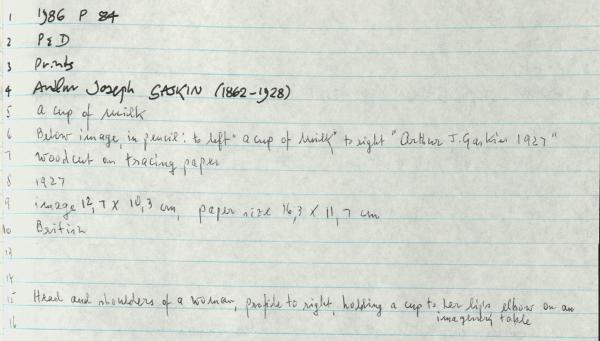 1 1986 P 84
2 P&D
3 Prints
4 Arthur Joseph GASKIN (1862-1928)
5 a cup of milk
6 Below image, in pencil: to left "a cup of milk" to right "Arthur J. Gaskin 1927"
7 woodcut on tracing paper
8 1927
9 image 12,7 x 10,3 cm, paper size 16,3 x 11,7 cm
10 British
13
14
15 Head and shoulders of a woman, profile to right, holding a cup to her lips elbow on an
imaginery table
16